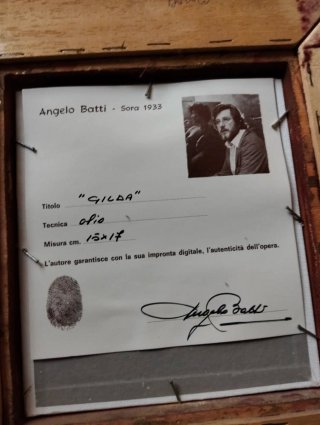 Angelo Batti - Sora 1933
Titolo "GILDA"
Tecnica olio
Misura cm. 15x17
L'autore garantisce con la sua impronta digitale, l'autenticità dell'opera.
Angelo Batti